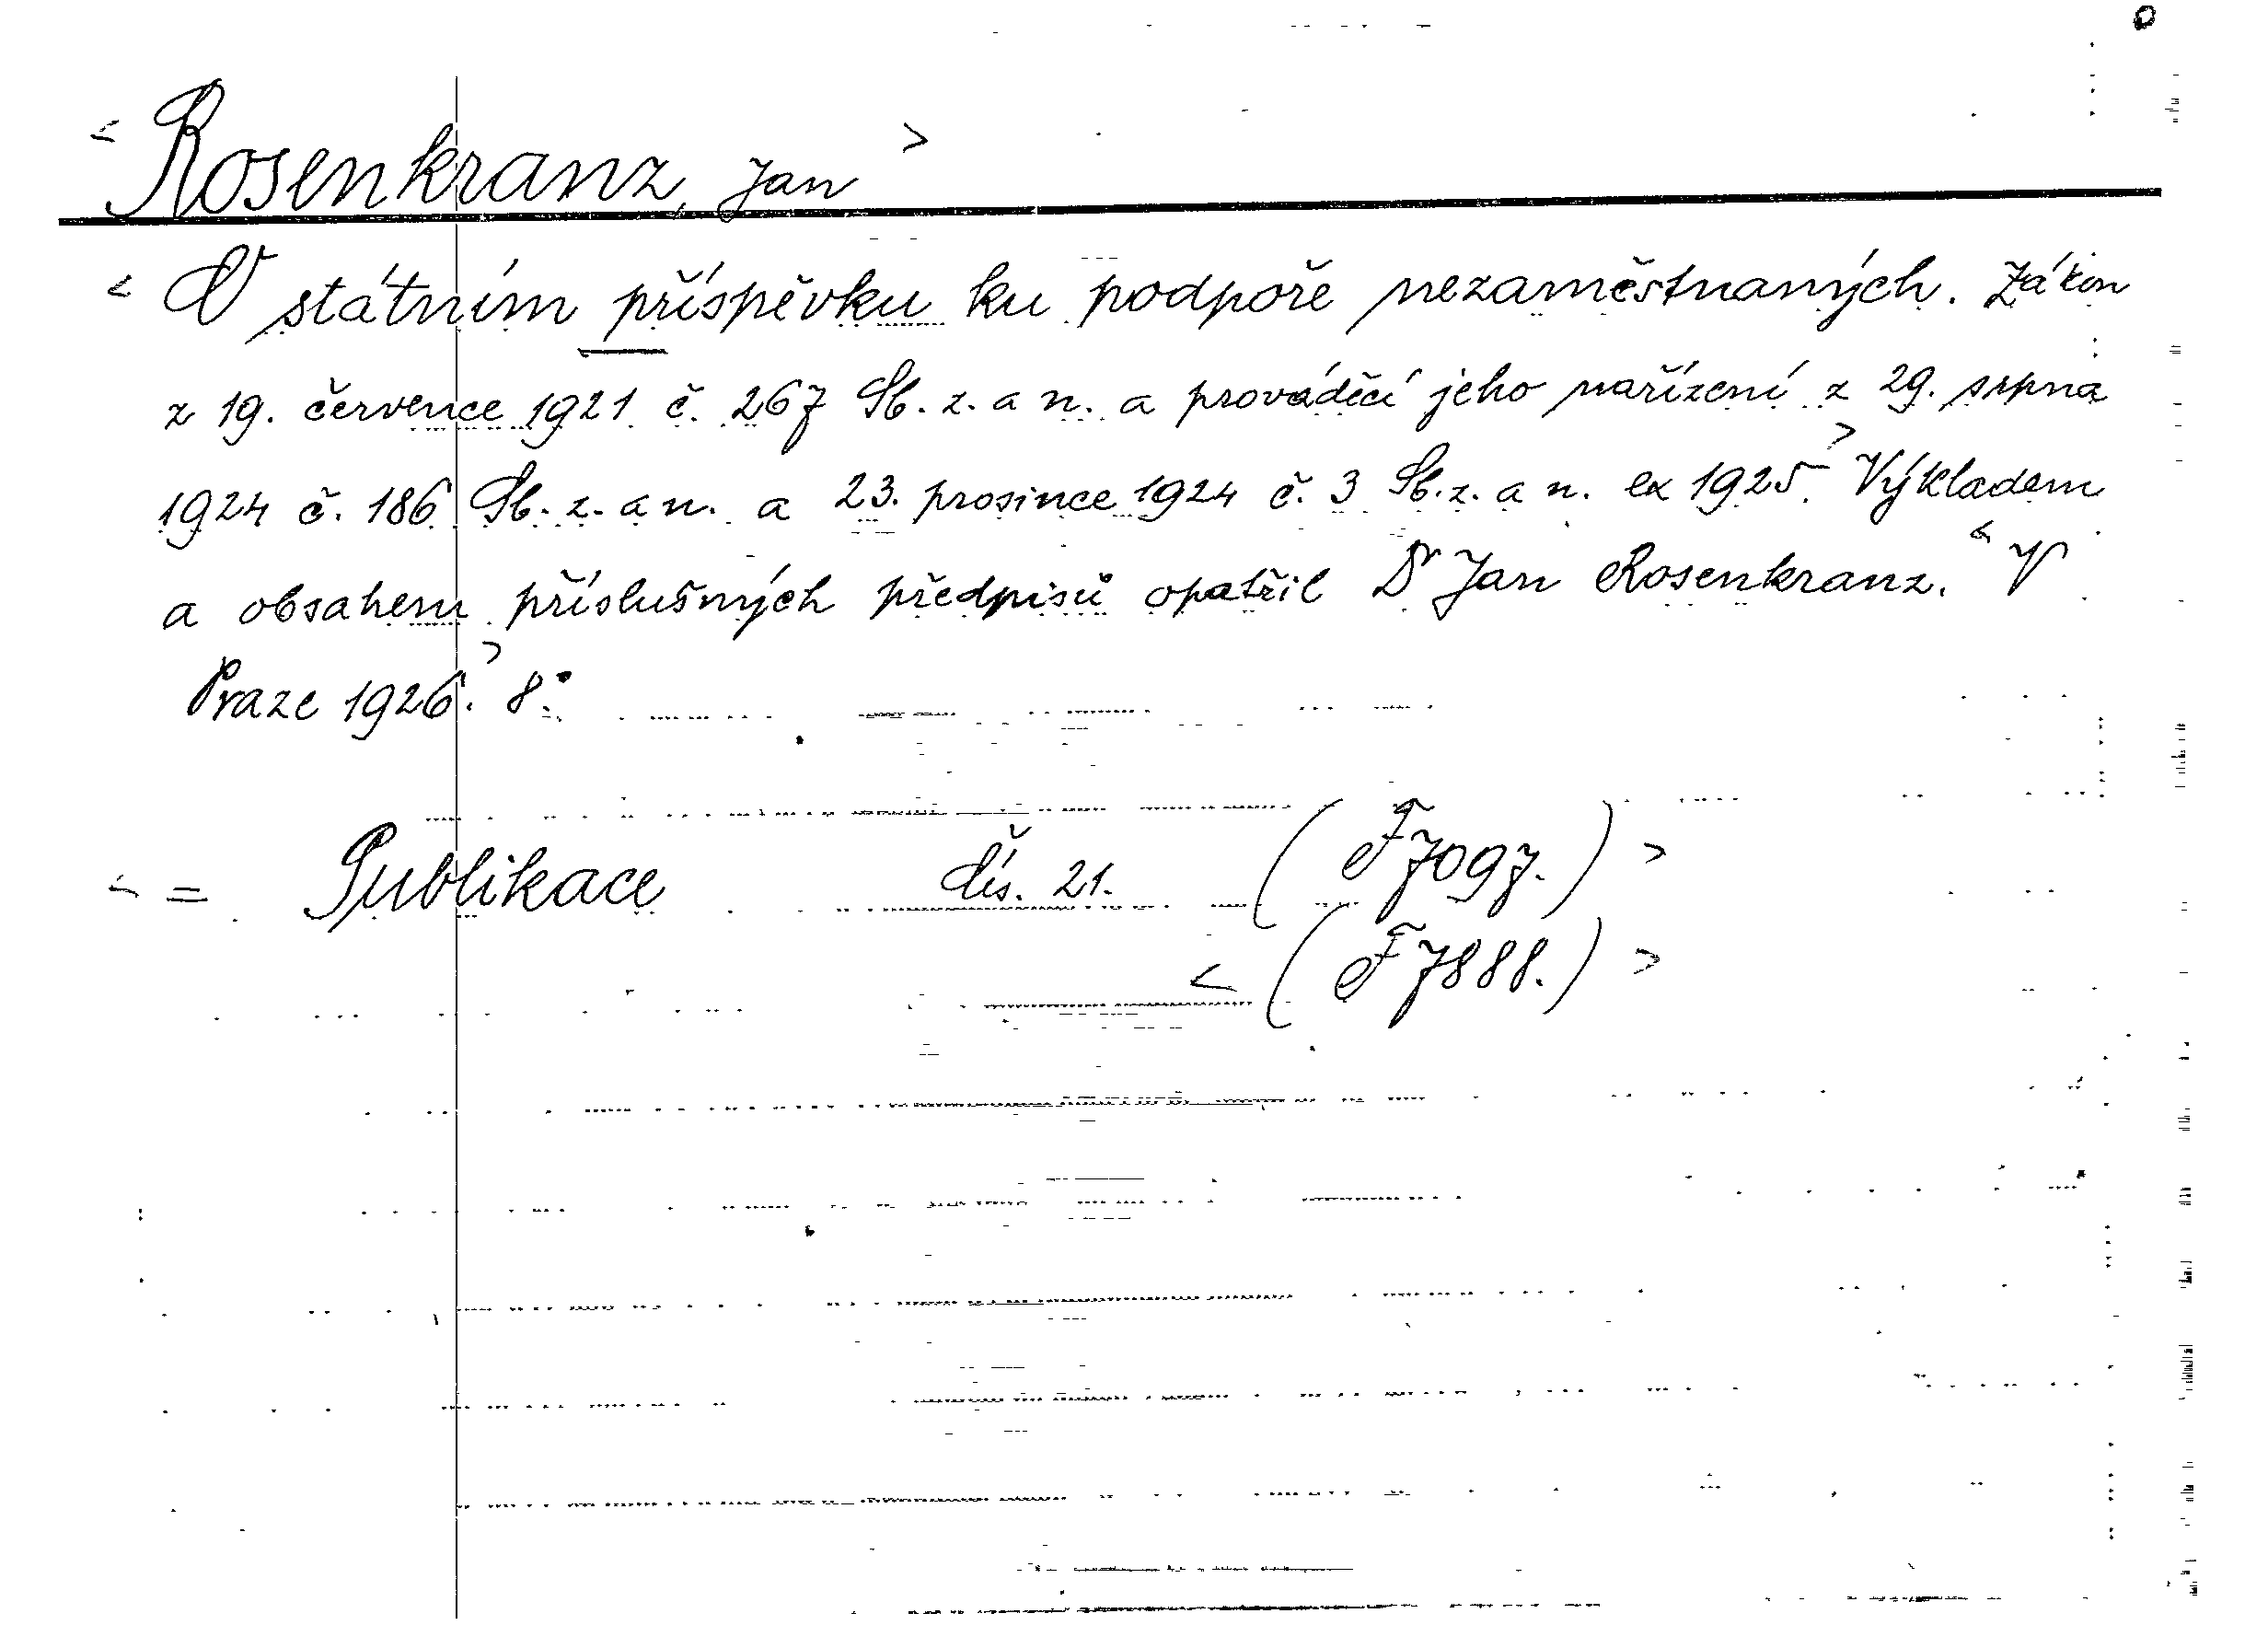 < Rosenkranz, Jan >
< O státním příspěvku ku podpoře nezaměstnaných. Zákon
z 19. července 1921 č. 267 Sb. z. a n. a prováděcí jeho nařízení z 29. srpna
1924 č. 186 Sb. z. a n. a 23. prosince 1924 č. 3 Sb. z. a n. ex 1925.> Výkladem
a obsahem příslušných předpisů opatřil Dr Jan Rosenkranz. < V
Praze 1926.> 8:°
< = Publikace čís. 21. (F 7097.) >
< (F 7888.) >